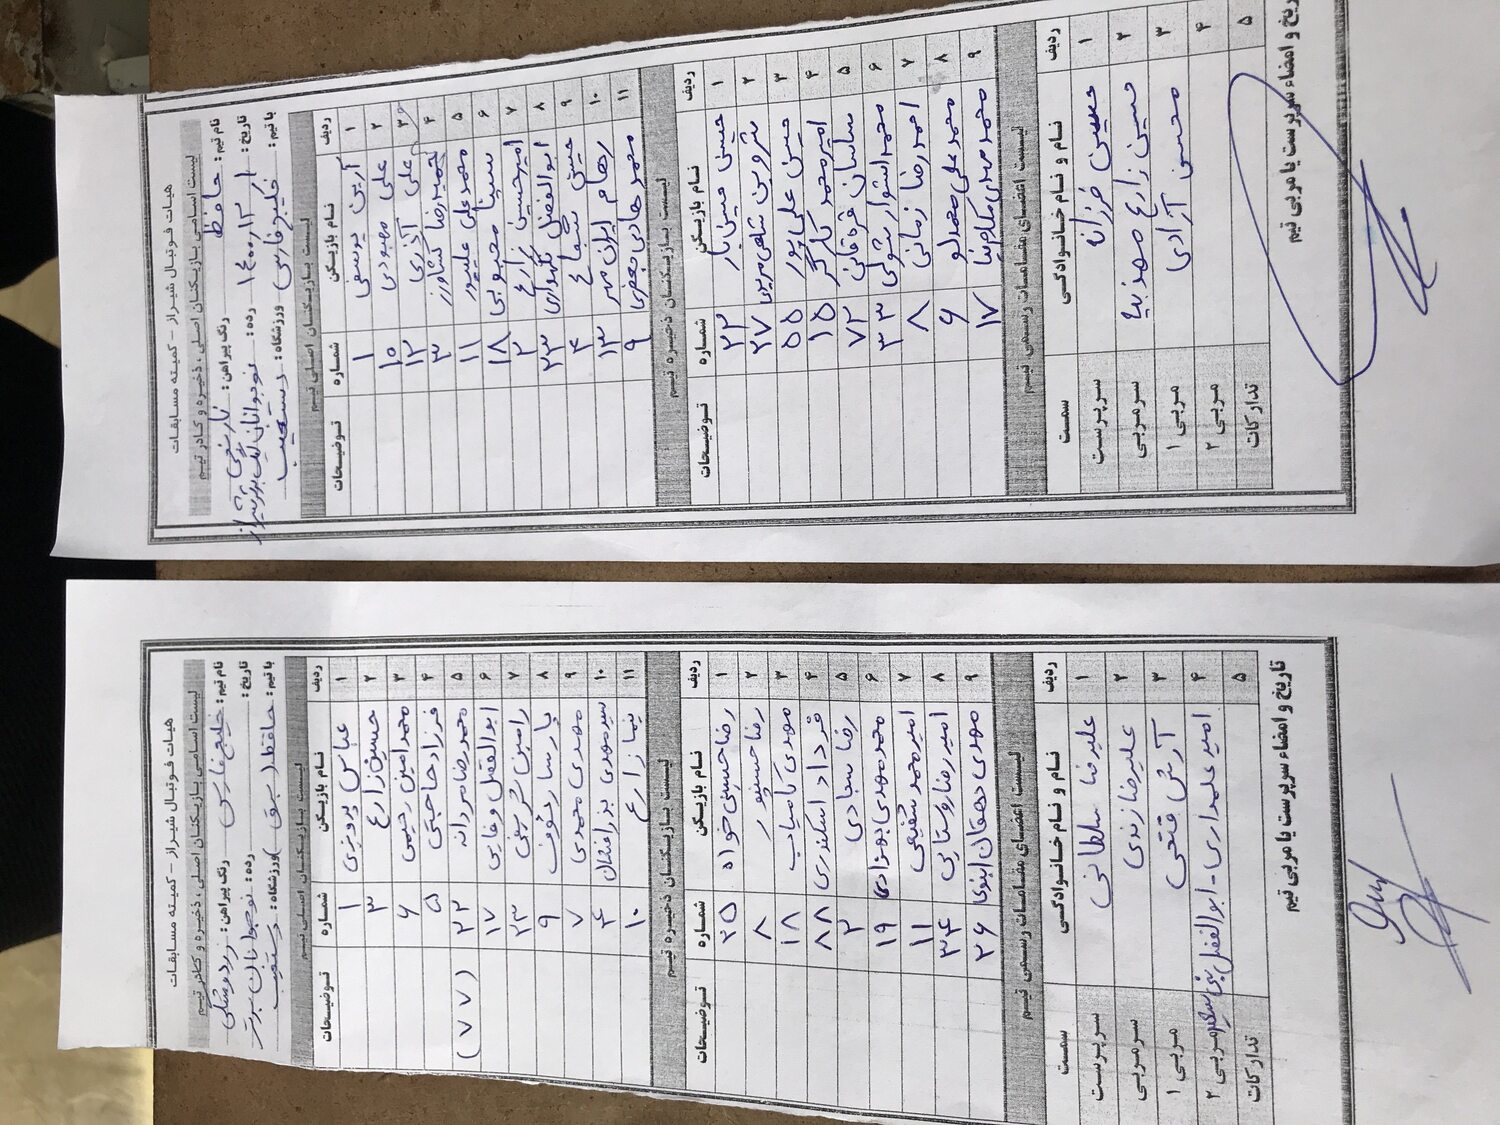 هیات فوتبال شیراز - کمیته مسابقات
لیست اسامی بازیکنان اصلی ، ذخیره و کادر تیم
نام تیم : حافظ رنگ پیراهن : نارنجی
تاریخ : ۱۴۰۰،۱۲،۱ رده : نوجوانان لیگ برتر شیراز
با تیم : خلیج فارس ورزشگاه : دستغیب
لیست بازیکنان اصلی تیم
ردیف نام بازیکن شماره توضیحات
۱ آرین یوسفی ۱
۲ علی مهبودی ۱۵
۳ علی آذری ۱۲
۴ حمیدرضا کشاورز ۳
۵ محمدعلی علیپور ۱۱
۶ سینا محبوبی ۱۸
۷ امیرحسین زارع ۲
۸ ابوالفضل نگهداری ۲۳
۹ حسین شجاع ۴
۱۰ رهام ایران مهر ۱۳
۱۱ محمدهادی جعفری ۹
لیست بازیکنان ذخیره تیم
ردیف نام بازیکن شماره توضیحات
۱ حسین حسین یار ۲۲
۲ شروین شاهمریدی ۲۷
۳ حسن علی پور ۵۵
۴ امیرمحمد کارگر ۱۵
۵ ساسان قره قانی ۷۲
۶ محمد استوار ۳۳
۷ احمدرضا زمانی ۸
۸ محمدعلی محمدلو ۶
۹ محمدمهدی مکارم نیا ۱۷
لیست اعضای مقامات رسمی تیم
ردیف نام و نام خانوادگی سمت
۱ حسین فرزانه سرپرست
۲ حسین زارع مهذبیه سرمربی
۳ محسن آرادی مربی ۱
۴ مربی ۲
۵ تدارکات
تاریخ و امضاء سرپرست یا مربی تیم
هیات فوتبال شیراز - کمیته مسابقات
لیست اسامی بازیکنان اصلی ، ذخیره و کادر تیم
نام تیم : خلیج فارس رنگ پیراهن : زرد مشکی
تاریخ : رده : نوجوانان برتر
با تیم : حافظ ( برق ) ورزشگاه : دستغیب
لیست بازیکنان اصلی تیم
ردیف نام بازیکن شماره توضیحات
۱ عباس پرویزی ۱
۲ حسین زارع ۳
۳ محمدامین رحیمی ۶
۴ فرزاد حاجتی ۵
۵ محمدرضا مردانه ۲۲ (۷۷)
۶ ابوالفضل وفایی ۱۷
۷ رامین شریفی ۲۳
۸ پارسا رئوف ۹
۹ مهدی محمدی ۷
۱۰ سیدمهدی بذرافشان ۴
۱۱ نیما زارع ۱۰
لیست بازیکنان ذخیره تیم
ردیف نام بازیکن شماره توضیحات
۱ رضا حسینی خواه ۲۵
۲ رضا حسنپور ۸
۳ مهدی کامیاب ۱۸
۴ فرداد اسکندری ۸۸
۵ رضا سجادی ۲
۶ محمدمهدی بهزادی ۱۹
۷ امیرمحمد شفیعی ۱۱
۸ امیررضا روستایی ۳۴
۹ مهدی دهقان ایزدی ۲۶
لیست اعضای مقامات رسمی تیم
ردیف نام و نام خانوادگی سمت
۱ علیرضا سلطانی سرپرست
۲ علیرضا زندی سرمربی
۳ آرش فتحی مربی ۱
۴ امیر علمداری - ابوالفضل بنی سعید مربی ۲
۵ تدارکات
تاریخ و امضاء سرپرست یا مربی تیم